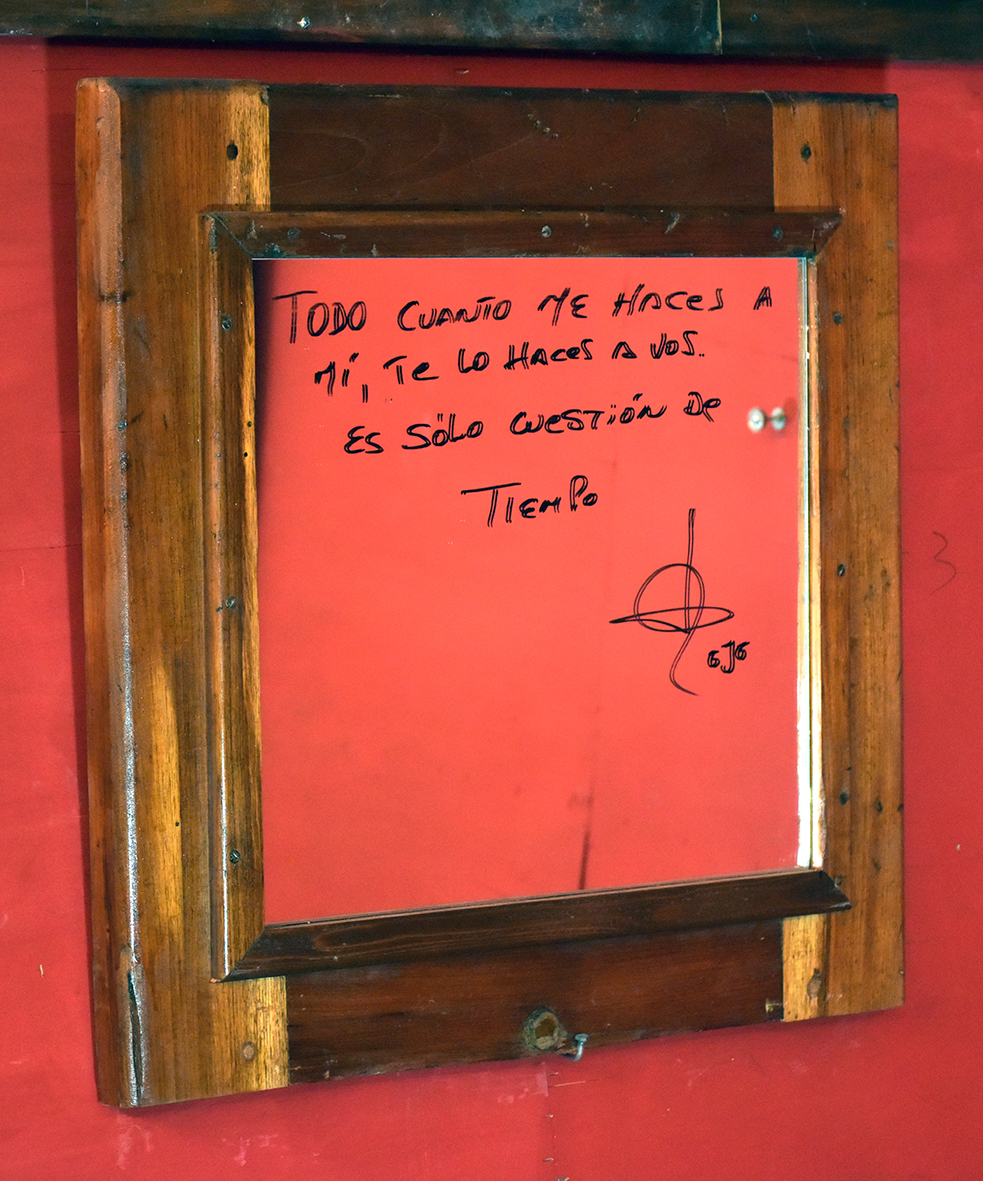 TODO CUANTO ME HACES A
MÍ, TE LO HACES A VOS.
ES SÓLO CUESTIÓN DE
TIEMPO
GJG
3